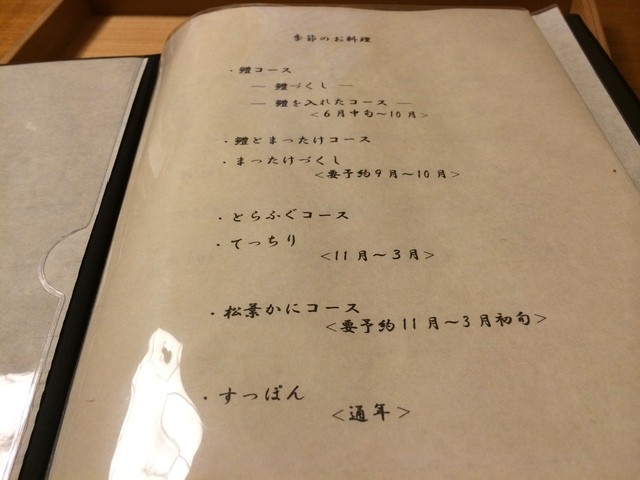 季節のお料理
・鱧コース
― 鱧づくし ―
― 鱧を入れたコース ―
<6月中旬～10月>
・鱧とまったけコース
・まったけづくし
<要予約9月～10月>
・とらふぐコース
・てっちり
<11月～3月>
・松葉かにコース
<要予約11月～3月初旬>
・すっぽん
<通年>